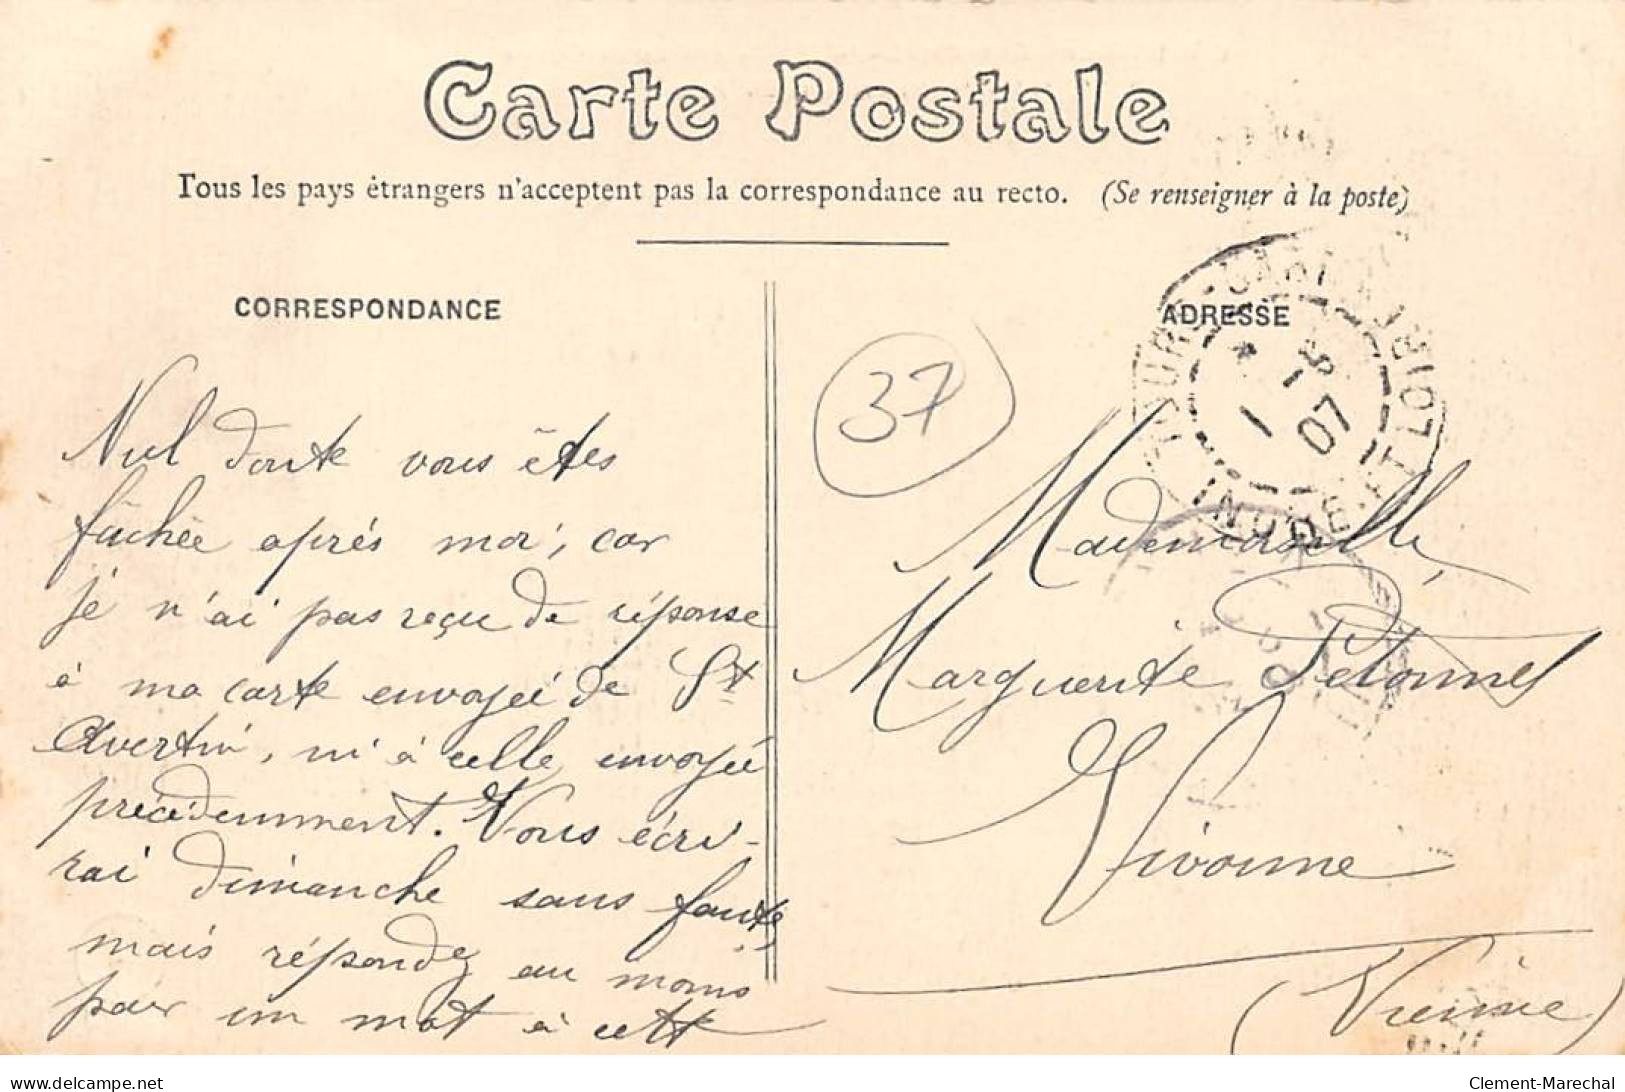 Carte Postale
Tous les pays étrangers n'acceptent pas la correspondance au recto. (Se renseigner à la poste)
CORRESPONDANCE
Nul doute vous êtes
fâchée après moi, car
je n'ai pas reçu de réponse
à ma carte envoyée de St
Avertin, ni à celle envoyée
précédemment. Vous écri-
rai dimanche sans faute,
mais répondez au moins
par un mot à cette
ADRESSE
37
1 - 5
07
INDRE-ET-LOIRE
Mademoiselle
Marguerite
Vivonne
(Vienne)
www.delcampe.net
Clement-Marechal